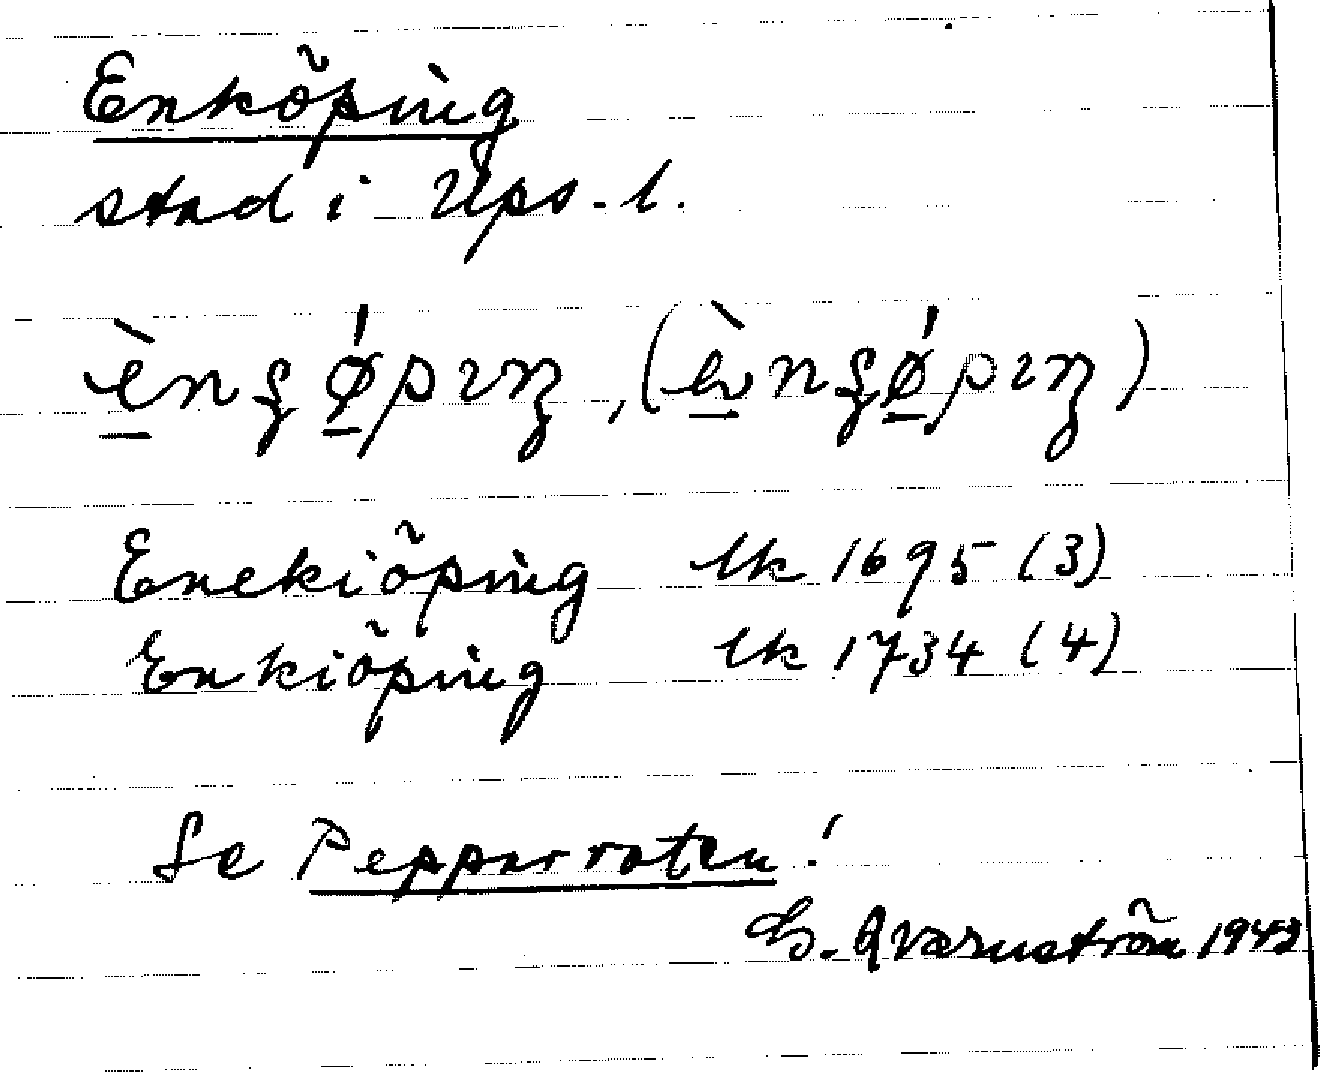 Enköping
stad i Ups. l.
Enekiöping lk 1695 (3)
Enkiöping lk 1734 (4)
Se Pepparroten!
G. Qvarnström 1943